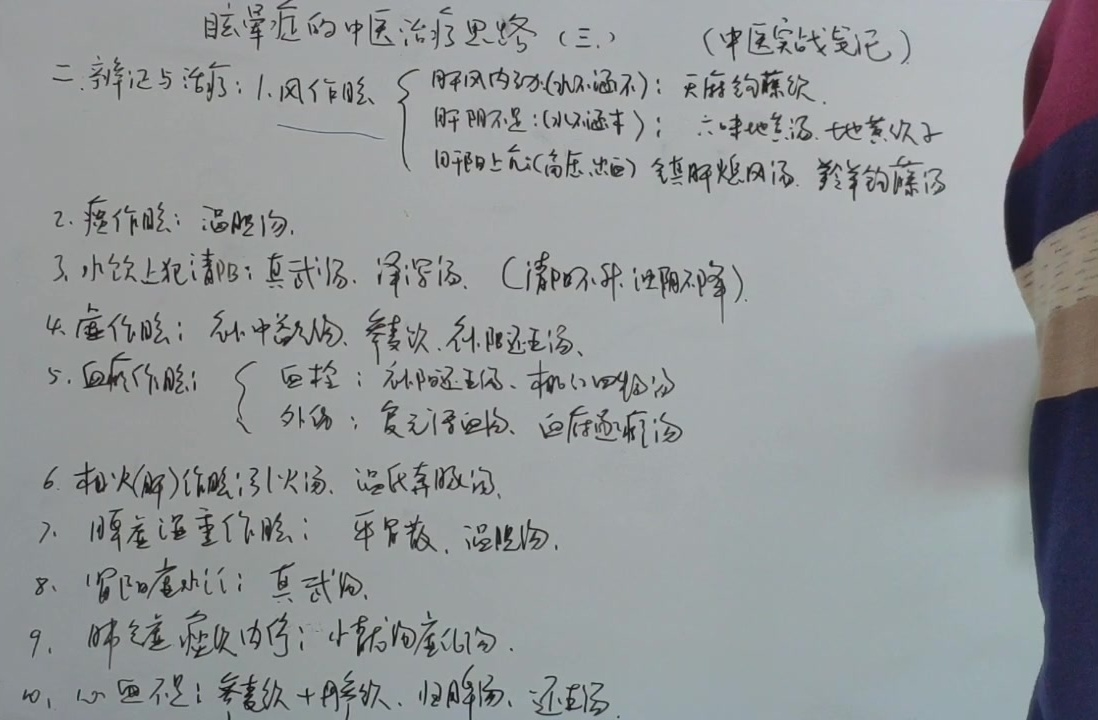 眩晕症的中医治疗思路（三.）（中医实战笔记）
二.辨证与治疗：1.风作眩
肝风内动(水不涵木)：天麻钩藤饮.
肝阴不足：(水不涵木)：六味地黄汤.地黄饮子
肝阳上亢(高压.出血) 镇肝熄风汤.羚羊钩藤汤
2.痰作眩：温胆汤.
3.水饮上犯清阳：真武汤.泽泻汤.（清阳不升.浊阴不降）.
4.虚作眩：补中益气汤、参麦饮.补阳还五汤、
5.血瘀作眩：
血栓：补阳还五汤、桃仁四物汤
外伤：复元活血汤、血府逐瘀汤
6.相火(肝)作眩：引火汤、温氏奔豚汤.
7、脾虚湿重作眩：平胃散、温胆汤.
8、肾阳虚水泛：真武汤.
9、肺气虚痰饮内停：小青汤
10、心血不足：参麦饮+丹参饮、归脾汤、还五汤.